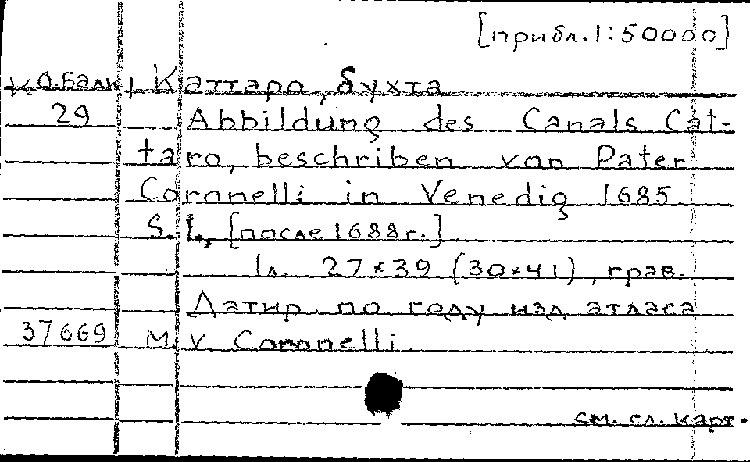 [прибл. 1:50000]
К о. Балк, Каттаро, бухта
29 Abbildung des Canals Cat-
taro, beschriben von Pater
Coronelli in Venedig 1685
S. l., [после 1688 г.]
1 л. 27×39 (30×41), грав.
Датир. по году изд. атласа
37669 M. v. Coronelli
см. сл. карт.